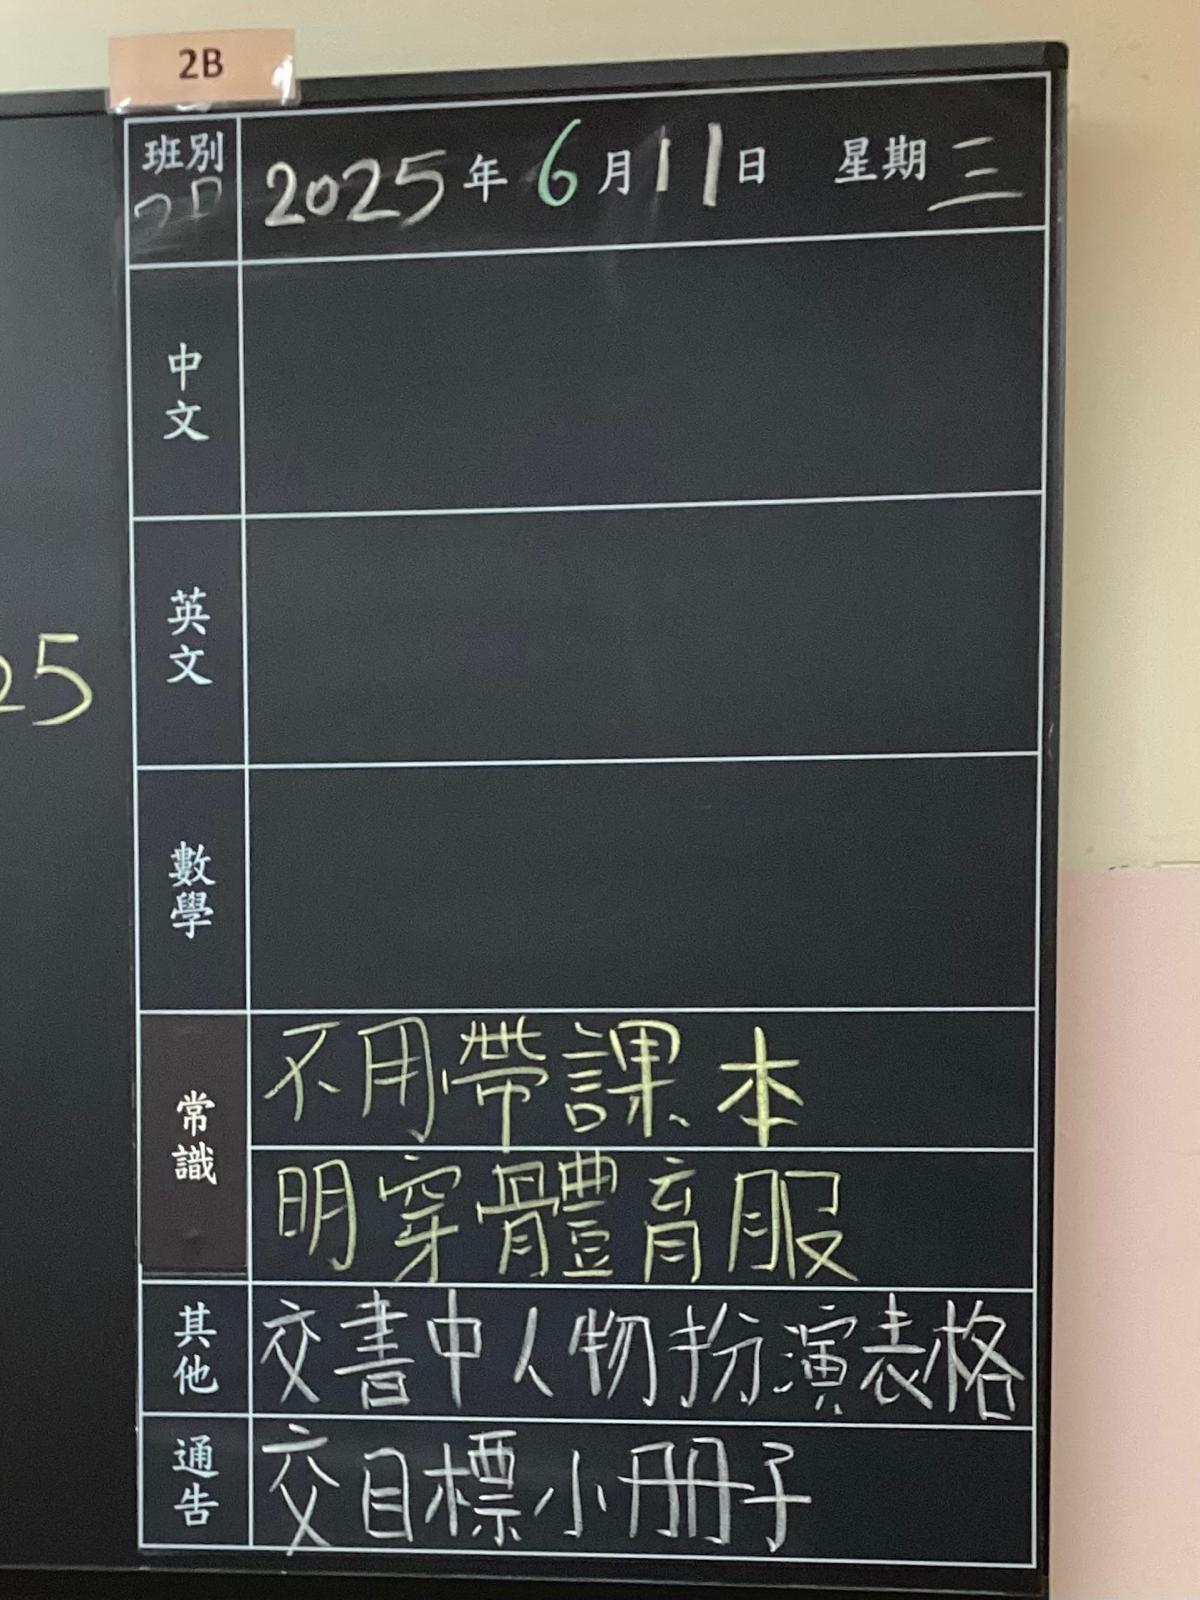 2B
班別 2025年6月11日 星期三
中文
英文
25
數學
常識
不用帶課本
明穿體育服
其他 交書中人物扮演表格
通告 交目標小冊子